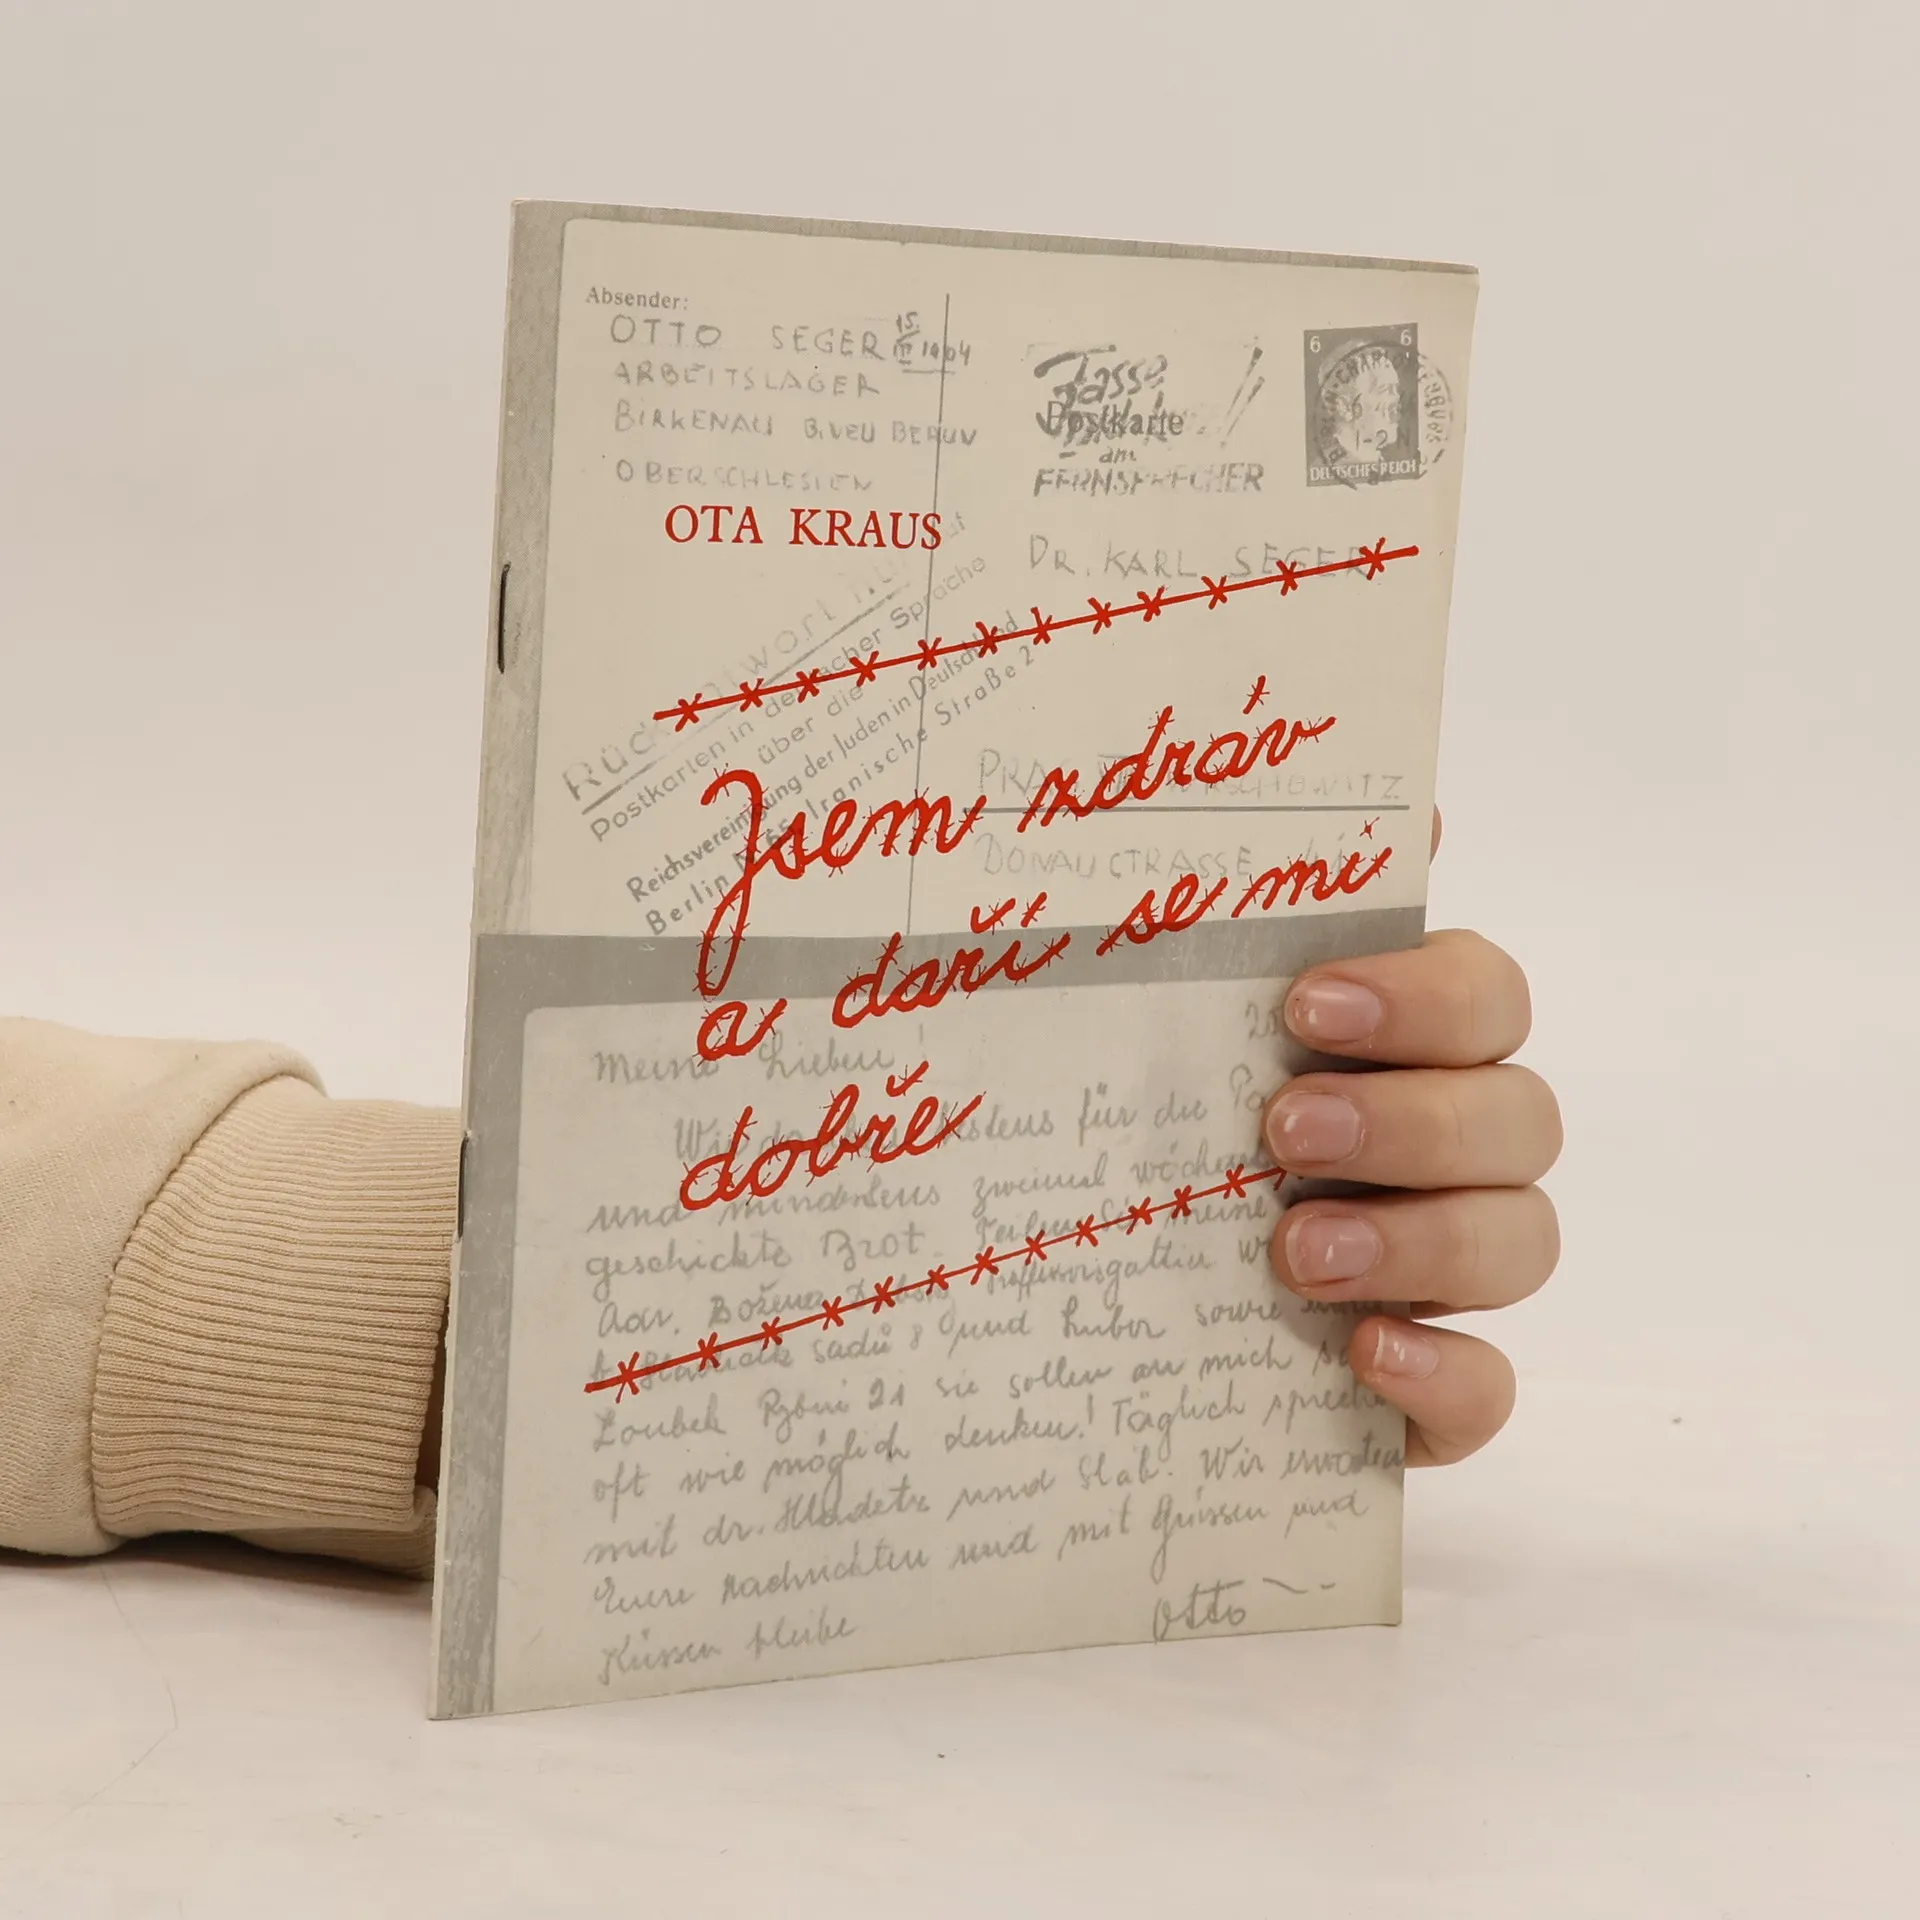 Absender:
OTTO SEGER 15. III 1904
ARBEITSLAGER
BIRKENAU B. NEU BERUN
OBERSCHLESIEN
Fasse
Postkarte
am
FERNSPRECHER
6 6
1-2
DEUTSCHES REICH
OTA KRAUS
DR. KARL SEGER
nur
Postkarten in deutscher Sprache
über die
Reichsvereinigung der Juden in Deutschland
Berlin Iranische Straße 2
PRAG
DONAUSTRASSE
Jsem zdráv
a daří se mi
dobře
Meine Lieben!
Wir bestens für die
und mindestens zweimal
geschickte Brot. Teilen Sie meine
Adr. Božena
sadů 8 und sowie
Loubek 21 sie sollen an mich
oft wie möglich denken! Täglich
mit dr. und Slab. Wir erwarten
Eure Nachrichten und mit Grüssen und
Küssen bleibe
Otto